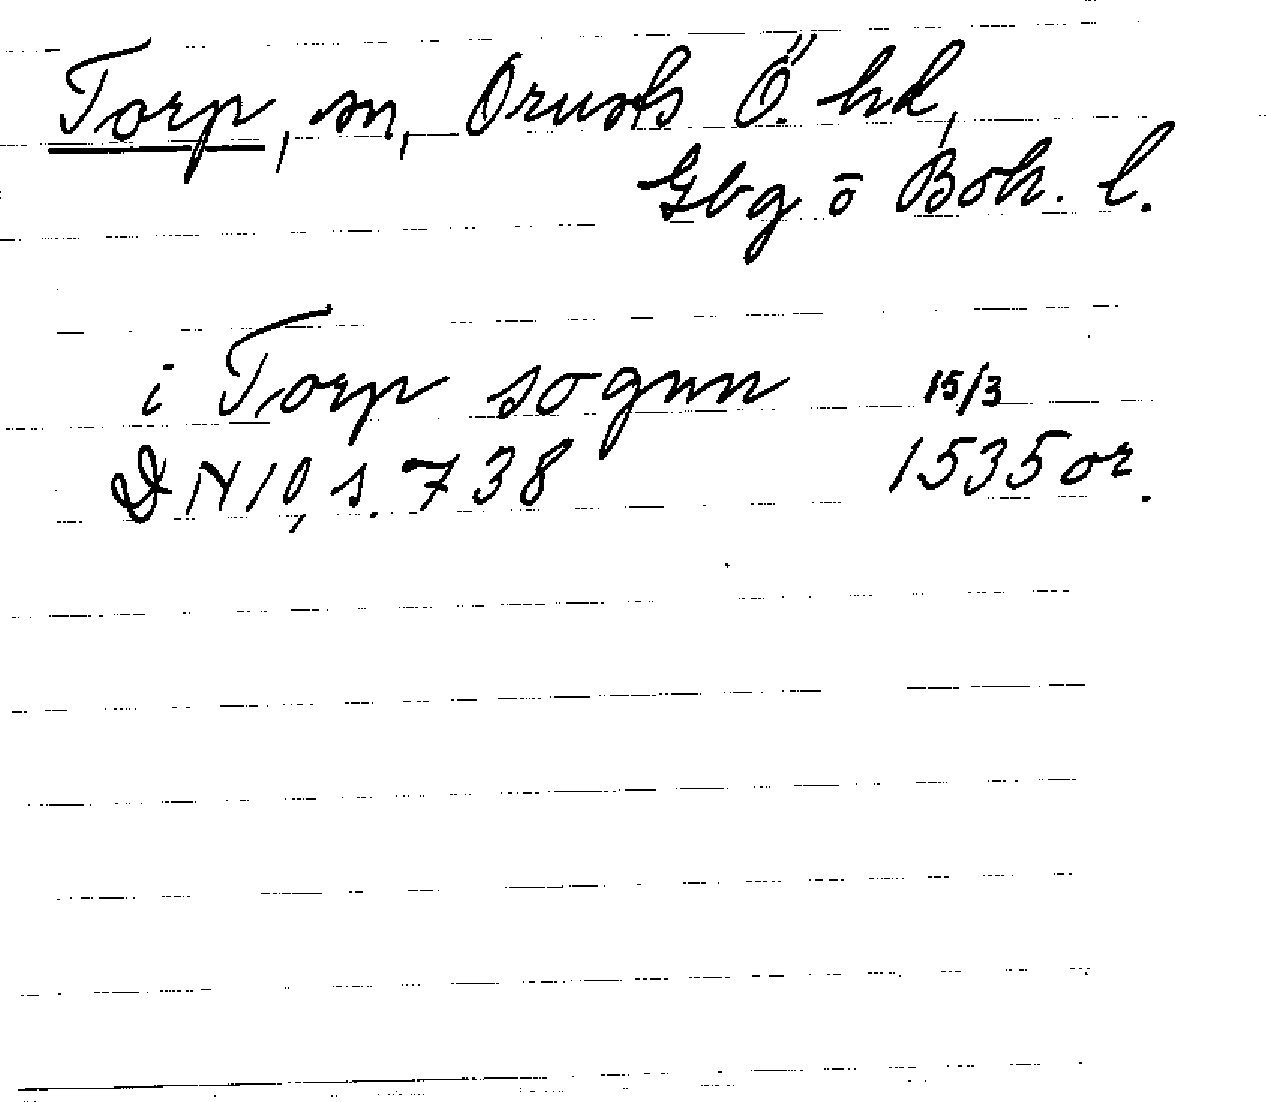 Torp, sn, Orusts Ö. hd,
Gbg ō Boh. l.
i Torp sognn 15/3
DN 10, s. 738 1535 or.